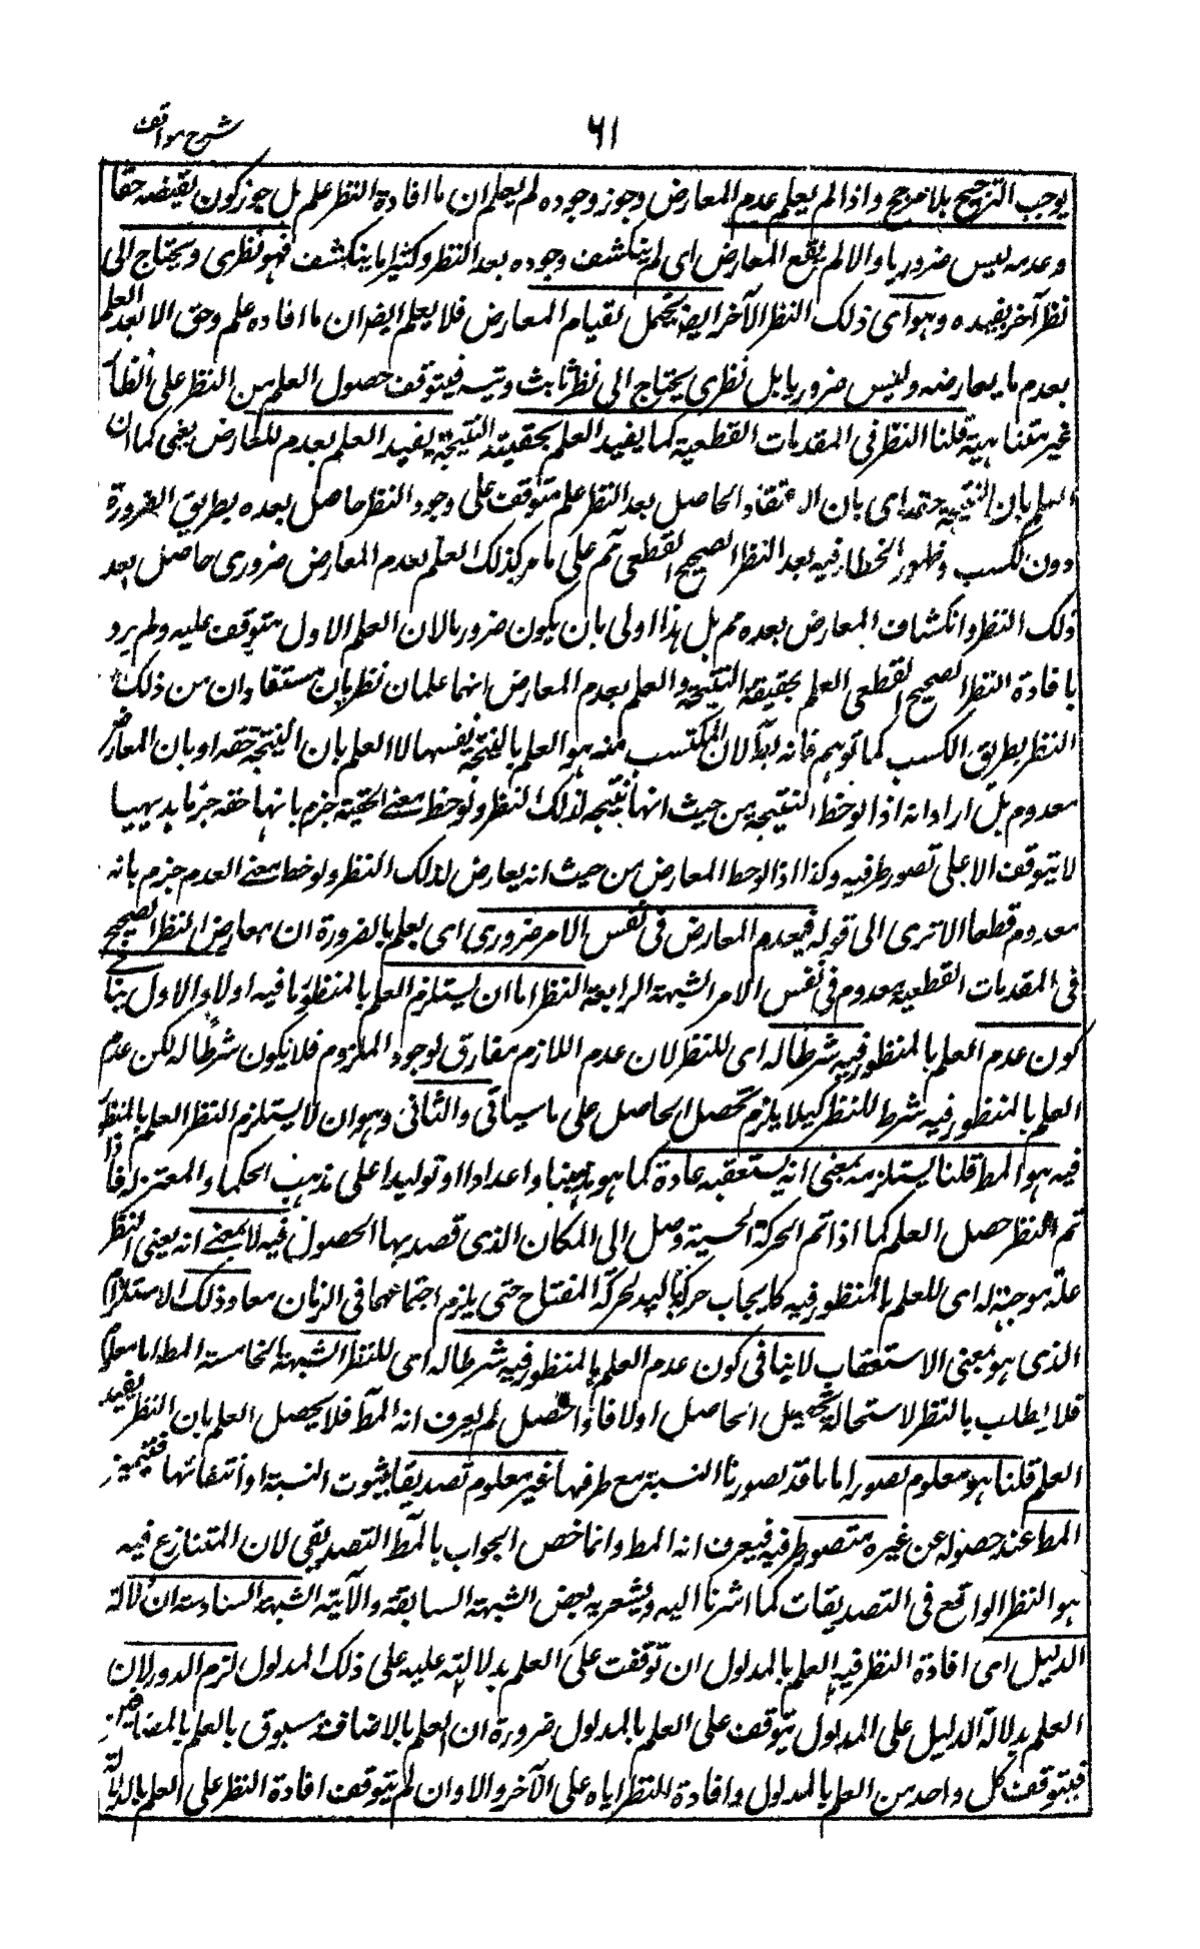 شرح مواقف
٦١
يوجب الترجيح بلا مرجح واذا لم يعلم عدم المعارض وجوز وجوده لم يعلم ان ما افادة النظر علم بل جوز كون نقيضه حقا
وعدمه ليس ضروريا والا لم يقع المعارض اى لم ينكشف وجوده بعد النظر وكثيرا ما ينكشف فهو نظرى ويحتاج الى
نظر آخر يفيده وهو اى ذلك النظر الآخر ايضا يحتمل لقيام المعارض فلا يعلم ايضا ان ما افاده علم وحق الا بعد العلم
بعدم ما يعارضه وليس ضروريا بل نظرى يحتاج الى نظر ثالث ويتسه فيتوقف حصول العلم من النظر على انظار
غير متناهية قلنا النظر فى المقدمات القطعية كما يفيد العلم بحقيقة النتيجة يفيد العلم بعدم المعارض يعنى كما ان
العلم بان النتيجة حقه اى بان الاعتقاد الحاصل بعد النظر علم متوقف على وجود النظر حاصل بعده بطريق الضرورة
دون الكسب وظهور الخطا فيه بعد النظر الصحيح القطعى مم على ما مر كذلك العلم بعدم المعارض ضرورى حاصل بعد
ذلك النظر وانكشاف المعارض بعده مم بل هذا اولى بان يكون ضروريا لان العلم الاول متوقف عليه ولم يرد
بافادة النظر الصحيح القطعى العلم بحقيقة النتيجة والعلم بعدم المعارض انهما علمان نظريان مستفادان من ذلك
النظر بطريق الكسب كما توهم فانه بط لان المكتسب منه هو العلم بالنتيجة نفسها لا العلم بان النتيجة حقه او بان المعارض
معدوم بل اراد انه اذا لوحظ النتيجة من حيث انها نتيجه لذلك النظر ولوحظ معنى الحقية جزم بانها حقه جزما بديهيا
لا يتوقف الا على تصور طرفيه وكذا اذا لوحظ المعارض من حيث انه يعارض لذلك النظر ولوحظ معنى العدم جزم بانه
معدوم قطعا الا ترى الى قوله فعدم المعارض فى نفس الامر ضرورى اى يعلم بالضرورة ان معارض النظر الصحيح
فى المقدمات القطعية معدوم فى نفس الامر الشبهة الرابعة النظر اما ان يستلزم العلم بالمنظور فيه اولا والاول ينافى
كون عدم العلم بالمنظور فيه شرطا له اى للنظر لان عدم اللازم مفارق لوجود الملزوم فلا يكون شرطا له لكن عدم
العلم بالمنظور فيه شرط للنظر كيلا يلزم تحصيل الحاصل على ما سياتى والثانى وهو ان لا يستلزم النظر العلم بالمنظور
فيه هو المط قلنا يستلزمه بمعنى انه يستعقبه عادة كما هو مذهبنا واعدادا او توليدا على مذهب الحكماء والمعتزلة فاذا
تم النظر حصل العلم كما اذا تم الحركة الحسية وصل الى المكان الذى قصد بها الحصول فيه لا بمعنى انه يعنى النظر
علة موجبة له اى للعلم بالمنظور فيه كايجاب حركة اليد لحركة المفتاح حتى يلزم اجتماعهما فى الزمان معا وذلك الاستلزام
الذى هو بمعنى الاستعقاب لا ينافى كون عدم العلم بالمنظور فيه شرطا له اى للنظر الشبهة الخامسة المط اما معلوم
فلا يطلب بالنظر لاستحالة تحصيل الحاصل اولا فاذا حصل لم يعرف انه المط فلا يحصل العلم بان النظر يفيد
العلم قلنا هو معلوم تصورا ما قد تصورنا النسبة مع طرفيها غير معلوم تصديقا بثبوت النسبة او انتفائها فيتميز
المط عند حصوله عن غيره متصور طرفيه فيعرف انه المط وانما خص الجواب بالمط التصديقى لان المتنازع فيه
هو النظر الواقع فى التصديقات كما اشرنا اليه ويشعر به بعض الشبهة السابقة والآتية الشبهة السادسة ان دلالة
الدليل اى افادة النظر فيه العلم بالمدلول ان توقفت على العلم بدلالته عليه على ذلك المدلول لزم الدور لان
العلم بدلالة الدليل على المدلول يتوقف على العلم بالمدلول ضرورة ان العلم بالاضافة مسبوق بالعلم بالمضافين
فيتوقف كل واحد من العلم بالمدلول وافادة النظر اياه على الآخر والا وان لم يتوقف افادة النظر على العلم بالدلالة